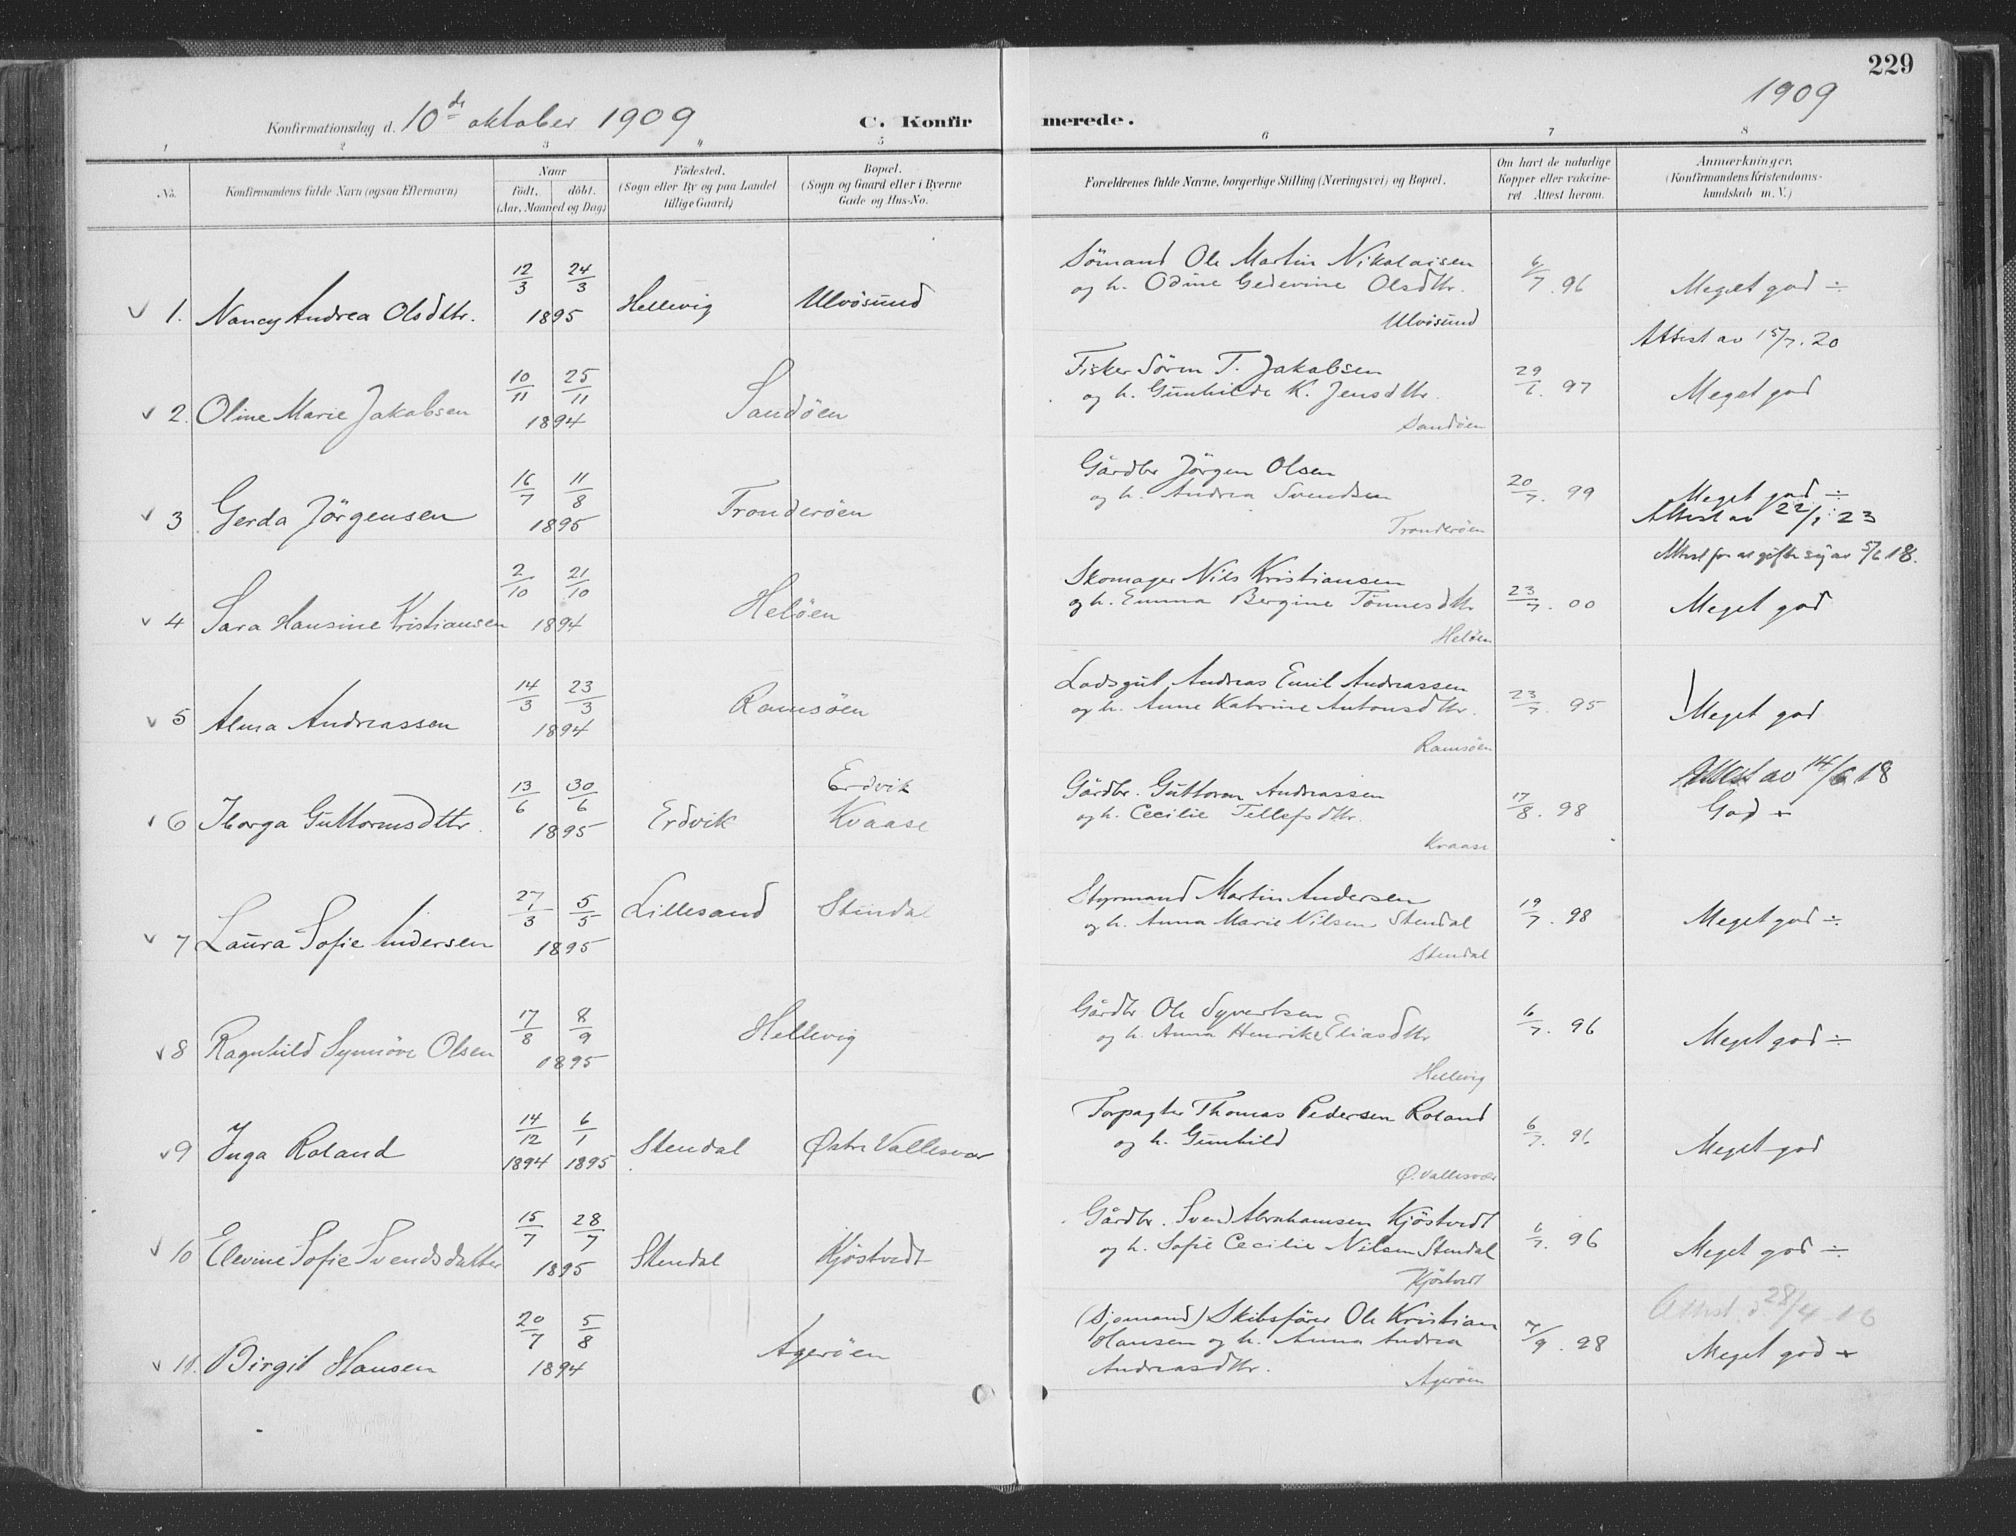 229
1909
Konfirmationsdag d. 10de oktober 1909
C. Konfirmerede.
1 2 3 4 5 6 7 8
No.
Konfirmandens fulde Navn (ogsaa Efternavn)
Naar
födt. döbt.
(Aar, Maaned og Dag)
Födested.
(Sogn eller By og paa Landet
tillige Gaard)
Bopæl.
(Sogn og Gaard eller i Byerne
Gade og Hus-No.
Forældrenes fulde Navne, borgerlige Stilling (Næringsvei) og Bopæl.
Om havt de naturlige
Kopper eller vakcine-
ret. Attest herom.
Anmærkninger.
(Konfirmandens Kristendoms-
kundskab m. V.)
1. Nancy Andrea Olsdttr. 12/3 24/3 1895 Hellevig Ulvösund
Sömand Ole Martin Nikolaisen
og h. Odine Gedevine Olsdttr.
Ulvösund
6/7. 96 Meget god ÷
Attest av 15/7. 20
2. Oline Marie Jakobsen 10/11 25/11 1894 Sandöen
Fisker Sören T. Jakobsen
og h. Gunhilde K. Jensdttr.
Sandöen
29/6. 97 Meget god
3 Gerda Jörgensen 16/7 11/8 1895 Tronderöen
Gårdbr Jörgen Olsen
og h. Andrea Svendsen
Tronderöen
20/7. 99 Meget god ÷
Attest av 22/1 23
Attest for at gifte sig av 5/6 18.
4 Sara Hansine Kristiansen 2/10 21/10 1894 Helöen
Skomager Nils Kristiansen
og h. Emma Bergine Tönnesdttr
Helöen
23/7. 00 Meget god
5 Alma Andreassen 14/3 23/3 1894 Ramsöen
Lodsgut Andreas Emil Andreassen
og h. Anne Katrine Antonsdttr.
Ramsöen
23/7. 95 Meget god
Attest av 14/6 18
6 Thorga Guttormsdttr. 13/6 30/6 1895 Erdvik
Erdvik
Kvaase
Gårdbr. Guttorm Andreassen
og h. Cecilie Tellefsdttr.
Kvaase
17/8. 98 God +
7 Laura Sofie Andersen 27/3 5/5 1895 Lillesand Stendal
Styrmand Martin Andersen
og h. Anna Marie Nilsen Stendal
Stendal
19/7. 98 Meget god ÷
8 Ragnhild Synnöve Olsen 17/8 8/9 1895 Hellevig
Gårdbr Ole Syvertsen
og h. Anna Henrikke Eliasdttr
Hellevig
6/7. 96 Meget god ÷
9 Inga Roland 14/12 1894 6/1 1895 Stendal Østre Vallesvær
Forpagter Thomas Pedersen Roland
og h. Gunhild
Ø. Vallesvær
6/7. 96 Meget god
10 Elevine Sofie Svendsdatter 15/7 28/7 1895 Stendal Kjöstvedt
Gårdbr. Svend Abrahamsen Kjöstvedt
og h. Sofie Cecilie Nilsen Stendal
Kjöstvedt
6/7. 96 Meget god ÷
Attest d 28/4 16
11. Birgit Hansen 20/7 5/8 1894 Ageröen
(Sjömand) Skibsförer Ole Kristian
Hansen og h. Anna Andrea
Andreasdttr.
Ageröen
7/9. 98 Meget god +